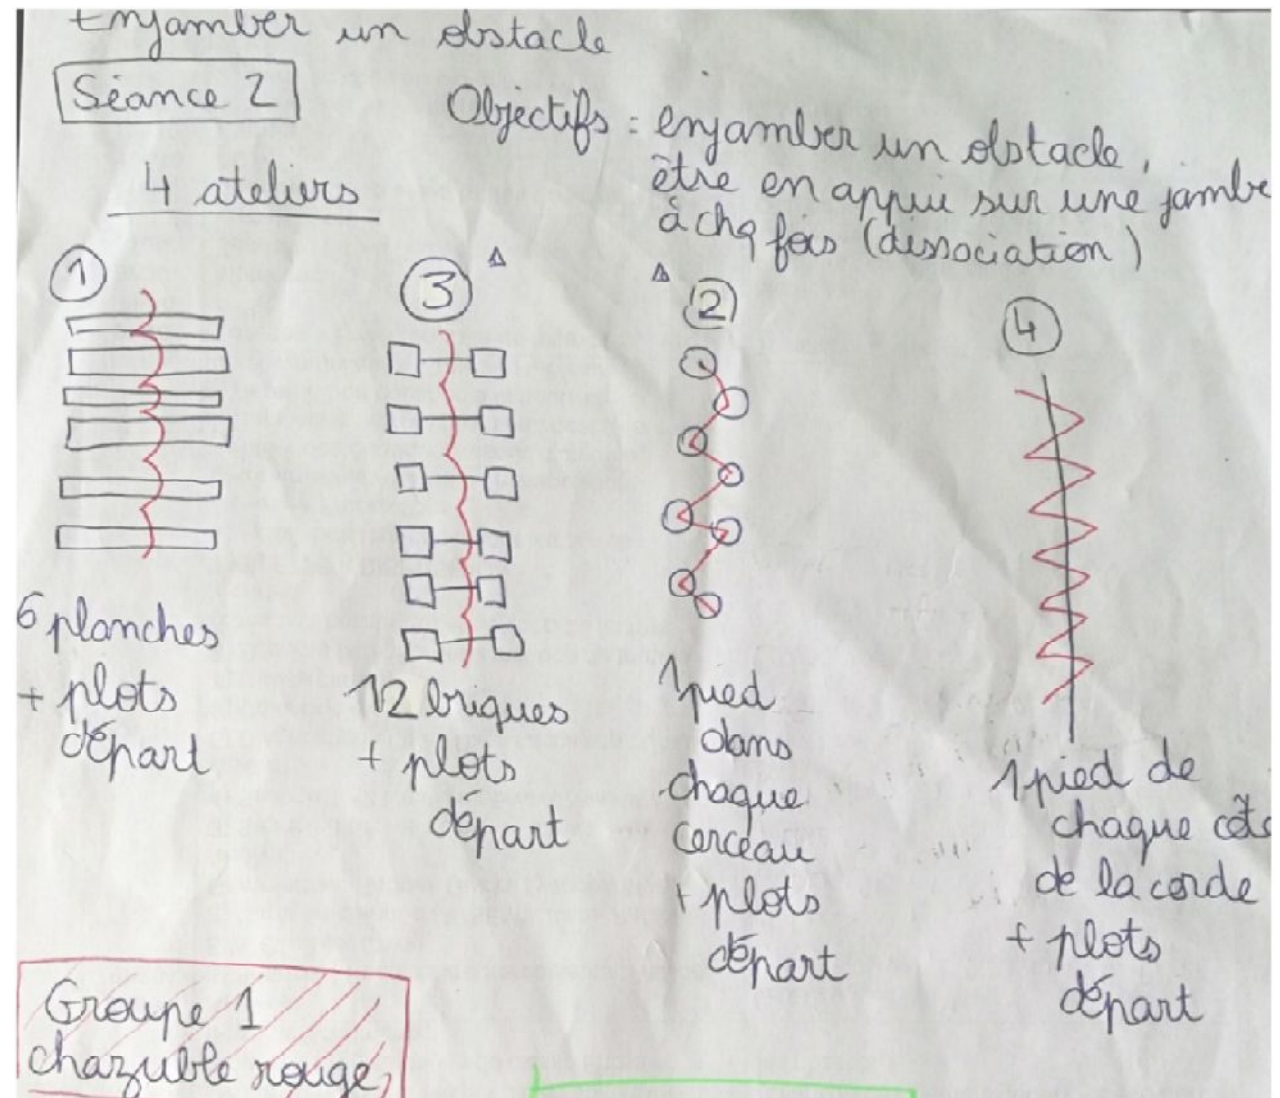 Enjamber un obstacle
Séance 2
Objectifs : enjamber un obstacle,
être en appui sur une jambe
à chq fois (dissociation)
4 ateliers
1
6 planches
+ plots
départ
3
12 briques
+ plots
départ
2
1 pied
dans
chaque
cerceau
+ plots
départ
4
1 pied de
chaque côté
de la corde
+ plots
départ
Groupe 1
chazuble rouge